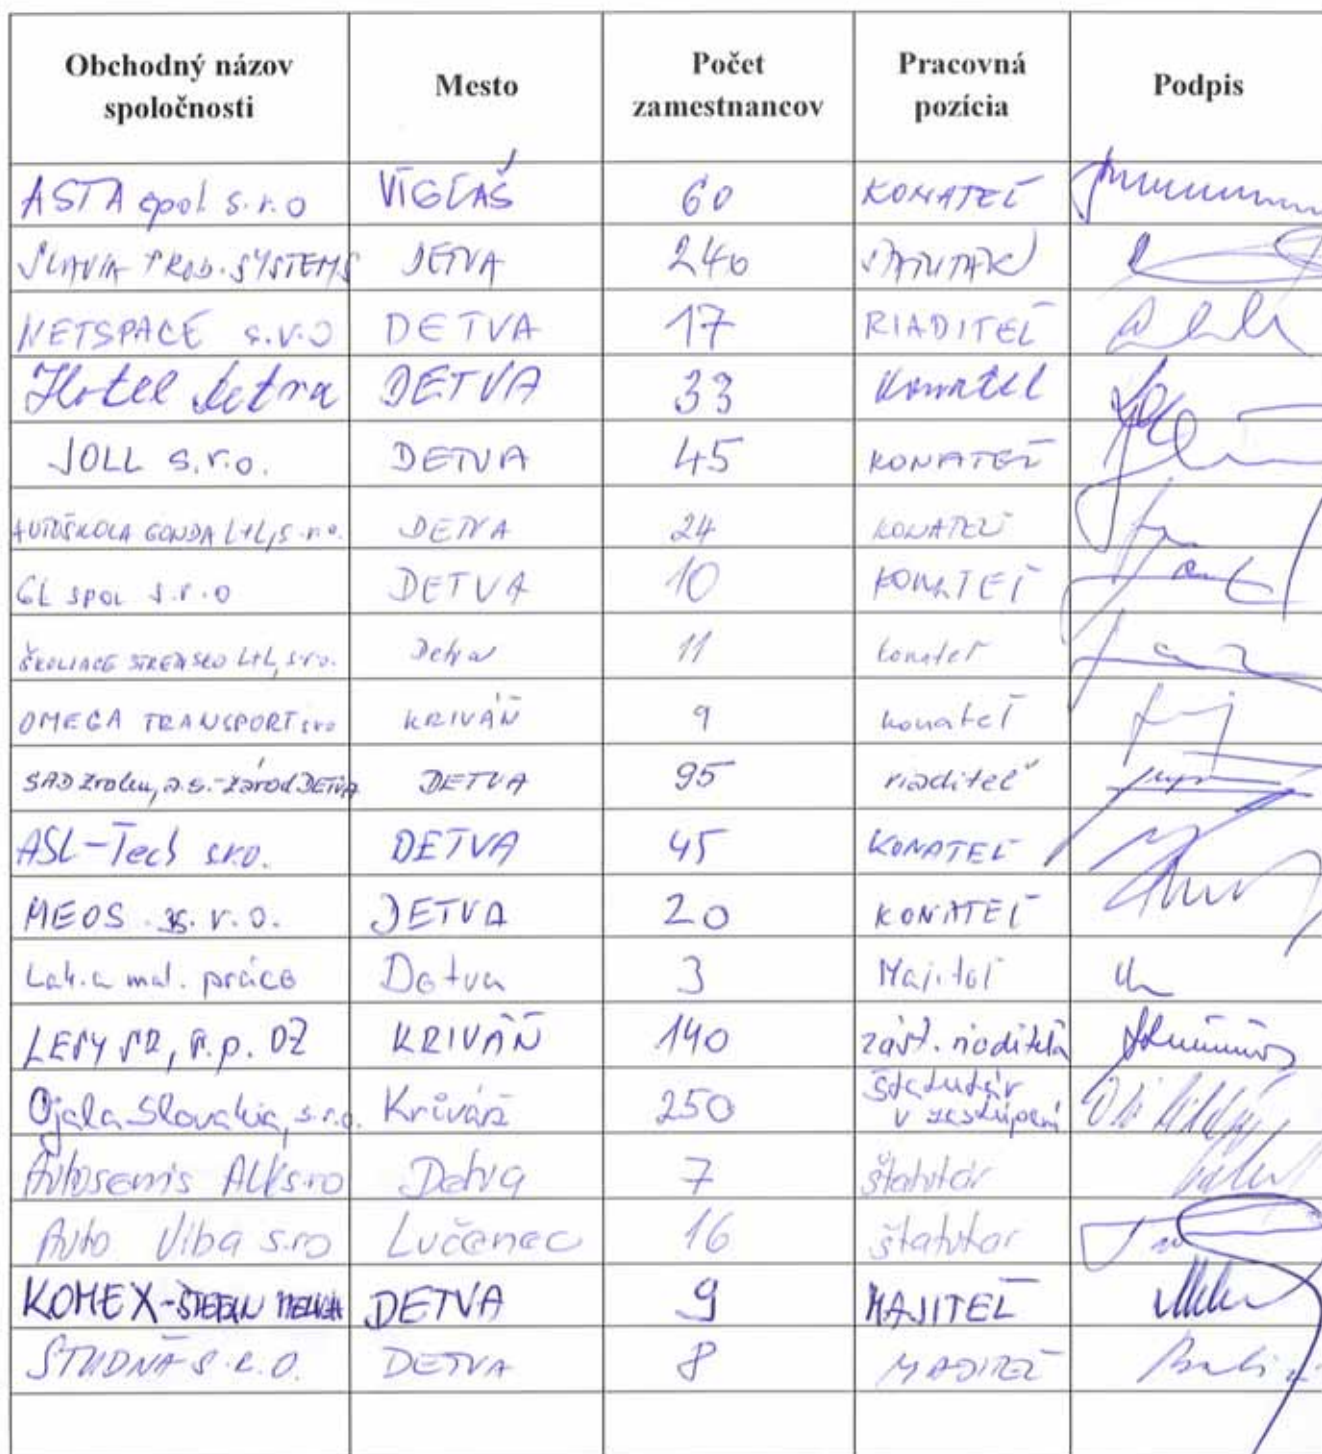 Obchodný názov Mesto Počet Pracovná Podpis
spoločnosti zamestnancov pozícia
ASTA spol. s.r.o VÍGĽAŠ 60 KONATEĽ
SLAVIA PROD. SYSTEMS DETVA 240 ŠTATUTÁR
NETSPACE s.r.o DETVA 17 RIADITEĽ
Hotel Detva DETVA 33 Konateľ
JOLL s.r.o. DETVA 45 KONATEĽ
AUTOŠKOLA GONDA L+L, s.r.o. DETVA 24 KONATEĽ
GL spol s.r.o DETVA 10 KONATEĽ
ŠKOLIACE STREDISKO L+L, s.r.o. Detva 11 konateľ
OMEGA TRANSPORT sro KRIVÁŇ 9 konateľ
SAD Zvolen, a.s.-závod DETVA DETVA 95 riaditeľ
ASL-Tech s.r.o. DETVA 45 KONATEĽ
MEOS s.r.o. DETVA 20 KONATEĽ
Lak. a mal. práce Detva 3 Majiteľ
LESY SR, š.p. OZ KRIVÁŇ 140 zást. riaditeľa
Ojala Slovakia, s.r.o. Kriváň 250 štatutár
v zastúpení
Autoservis ALK sro Detva 7 štatutár
Auto Viba s.r.o Lučenec 16 štatutár
KOMEX-ŠTEFAN DETVA 9 MAJITEĽ
STUDŇA S.R.O. DETVA 8 MAJITEĽ